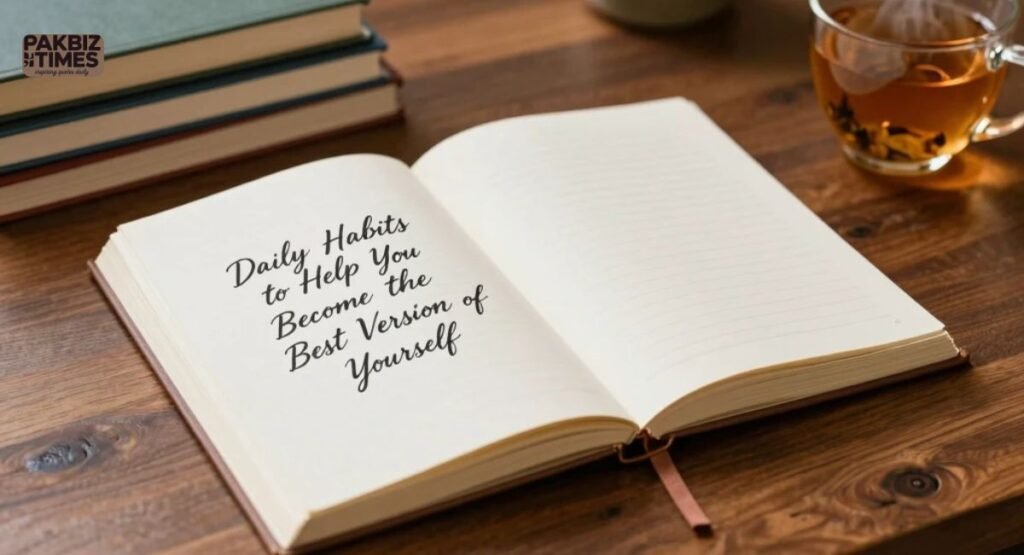 PAKBIZ
TIMES
inspiring quotes daily
Daily Habits
to Help You
Become the
Best Version of
Yourself